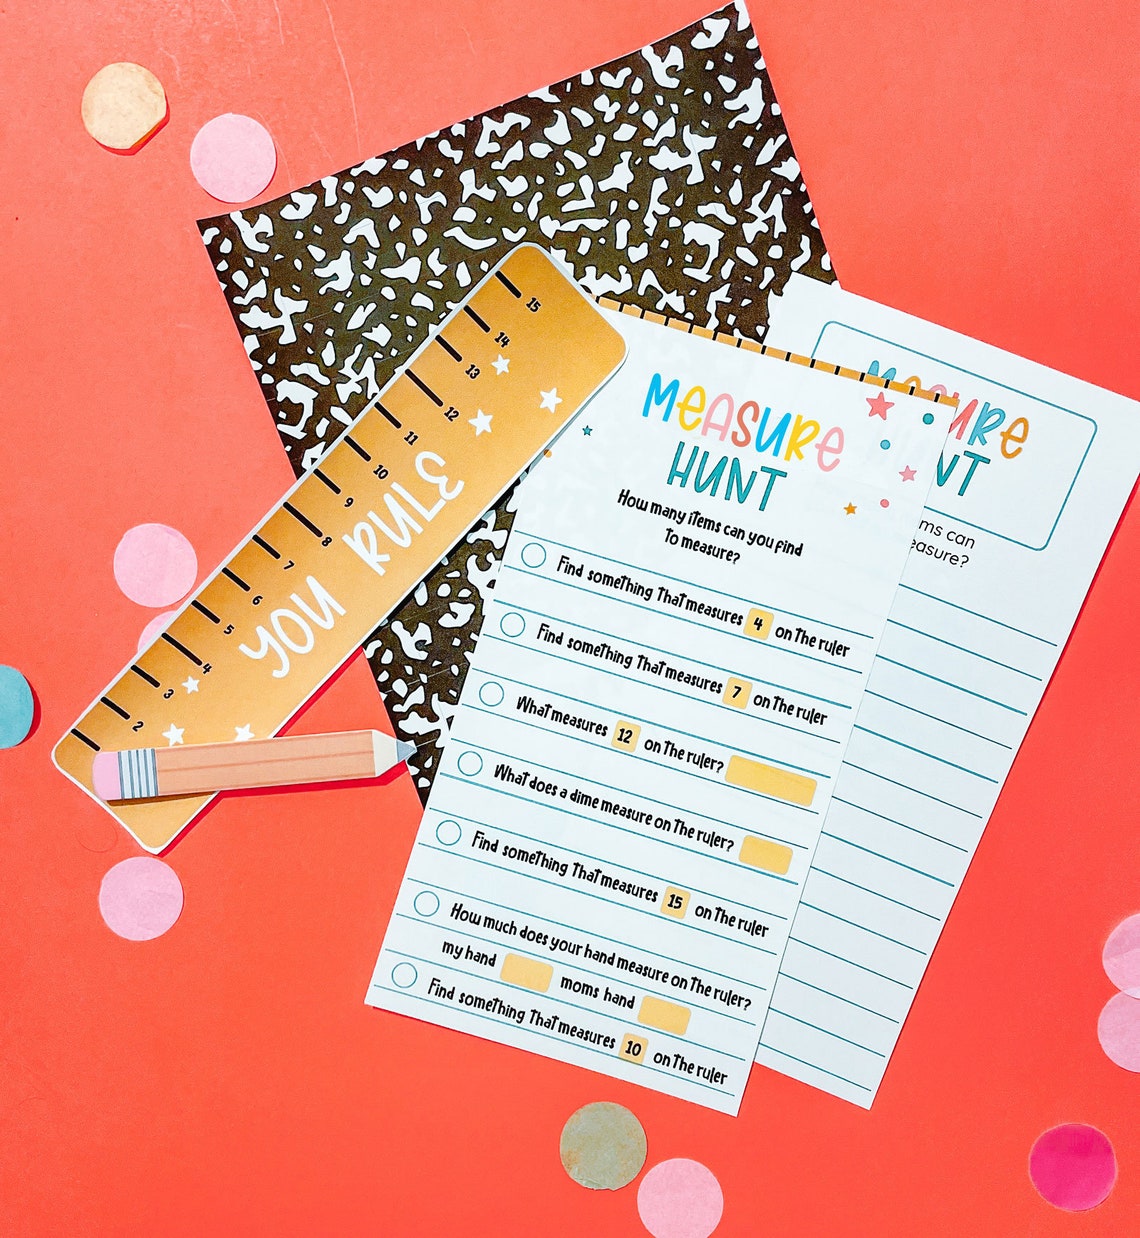 15
14
13
12
11
10
9
8
7
6
5
4
3
2
YOU RULE
MEASURE
HUNT
How many items can you find
To measure?
Find something That measures 4 on The ruler
Find something That measures 7 on The ruler
What measures 12 on The ruler?
What does a dime measure on The ruler?
Find something That measures 15 on The ruler
How much does your hand measure on The ruler?
my hand moms hand
Find something That measures 10 on The ruler
MEASURE
NT
ms can
easure?